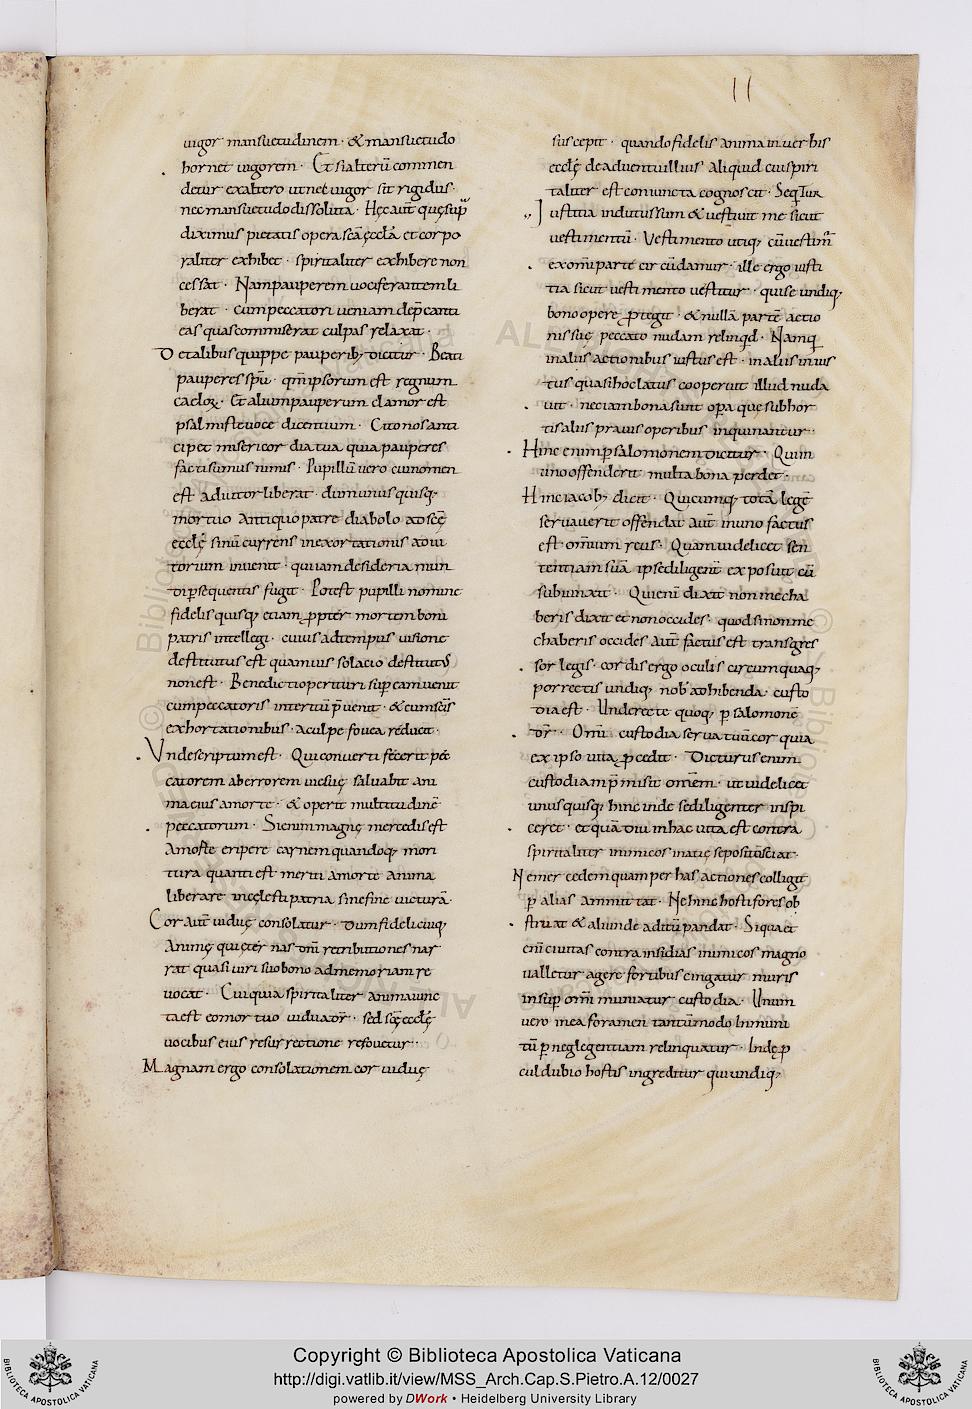 11
uigor mansuetudinem · & mansuetudo
hornet uigorem · Et si alterũ commen
detur ex altero ut nec uigor sit rigidus ·
nec mansuetudo dissoluta · Hęc aut̃ quę sup̃
diximus pietatis opera sc̃a ęccl̃a et corpo
raliter exhibet · spiritaliter exhibere non
cessat · Nam pauperem uociferantem li
berat · cum peccatori ueniam dep̃canti
eas quas commiserat culpas relaxat ·
De talibus quippe pauperib; dicitur · Beati
pauperes sp̃u · qm̃ ipsorum est regnum
caeloꝝ · Et alium pauperum clamor est
psalmiste uoce dicentium · Cito nos anti
cipet misericordia tua quia pauperes
facti sumus nimis · Pupillũ uero cui nomen
est adiutor liberat · dum unusquisq;
mortuo antiquo patre diabolo ad sc̃ę
eccl̃ę sinũ currens in exortationis adiu
torium inuenit · qui iam desideria mun
di p̲sequentis fugit · Potest pupilli nomine
fidelis quisq; etiam ꝓpter mortem boni
patris intellegi · cuius ad tempus uisione
destitutus est quamuis solacio destitutus
non est · Benedictio perituri sup̲ eam uenit
cum peccatoris interitũ p̃uenit · & eum sc̃is
exhortationibus · a culpe fouea reducit ·
Vnde scriptum est · Qui conuerti fecerit pec
catorem ab errore uie suę saluabit ani
ma eius a morte · & operit multitudinẽ
peccatorum · Si enim magnę mercedis est
a morte eripere carnem quandoq; mori
tura quanti est meriti a morte anima
liberare in cęlesti patria sine fine uictura ·
Cor aut̃ uiduę consolatur · dum fideli cuiq;
animę qui ęternas dn̄i retributiones nar
rat quasi uiri sui bono ad memoriam re
uocat · Cui quia spiritaliter anima iunc
ta est eo mortuo uiduat̃ · sed sc̃ę eccl̃ę
uocibus eius resurrectione refouetur ·
Magnam ergo consolationem cor uiduę
suscepit · quando fidelis anima in uerbis
eccl̃ę de aduentu illius aliquid cui spiri
taliter est coniuncta cognoscit · Sequitur
Iustitia indutus sum & uestiuit me sicut
uestimentũ · Vestimento utiq; cũ uestim̃
ex omni parte circũdamur · ille ergo iusti
tia sicut uestimento uestitur · qui se undiq;
bono opere ꝓtegit · & nullã partẽ actio
nis suę peccato nudam relinq̃d · Namq̃
in aliis actionibus iustus est · in aliis inius
tus quasi hoc latus cooperuit illud nuda
uit · nec iam bona sunt op̲a que subhor
tis aliis prauis operibus inquinantur ·
Hinc enim p̲ salomonem dicitur · Qui in
uno offenderit multa bona perdet ·
Hinc iacob; dicit · Quicumq; totã legẽ
seruauerit offendat aut̃ in uno factus
est om̃ium reus · Quam uidelicet sen
tentiam suã ipse diligent̃ exposuit cũ
subiunxit · Qui eni dixit non mecha
beris dixit et non occides · quod si non me
chaberis occides aut̃ factus est transgres
sor legis · cordis ergo oculis circumquaq;
porrectis undiq; nob̃ adhibenda custo
dia est · Vnde recte quoq; p̲ salomonẽ
dr̃ · Om̃i custodia serua tuũ cor quia
ex ipso uita ꝓcedit · Dicturus enim
custodiam p̃misit om̃em · ut uidelicet
unusquisq; hinc inde se diligenter inspi
ceret · et quãdiu in hac uita est contra
spiritaliter inimicos in acię se positũ sciat ·
Ne mercedem quam per has actiones colligit
p̲ alias ammittat · Ne hinc hosti fores ob
struat & aliunde aditũ pandat · Siqua et
eni ciuitas contra insidias inimicos magno
ualletur agere fortibus cingatur muris
insup̲ om̃i muniatur custodia · Vnum
uero in ea foramen tantũmodo inmuni
tũ p̲ neglegentiam relinquatur · Inde p̲
cul dubio hostis ingreditur qui undiq;
Copyright © Biblioteca Apostolica Vaticana
http://digi.vatlib.it/view/MSS_Arch.Cap.S.Pietro.A.12/0027
powered by DWork • Heidelberg University Library